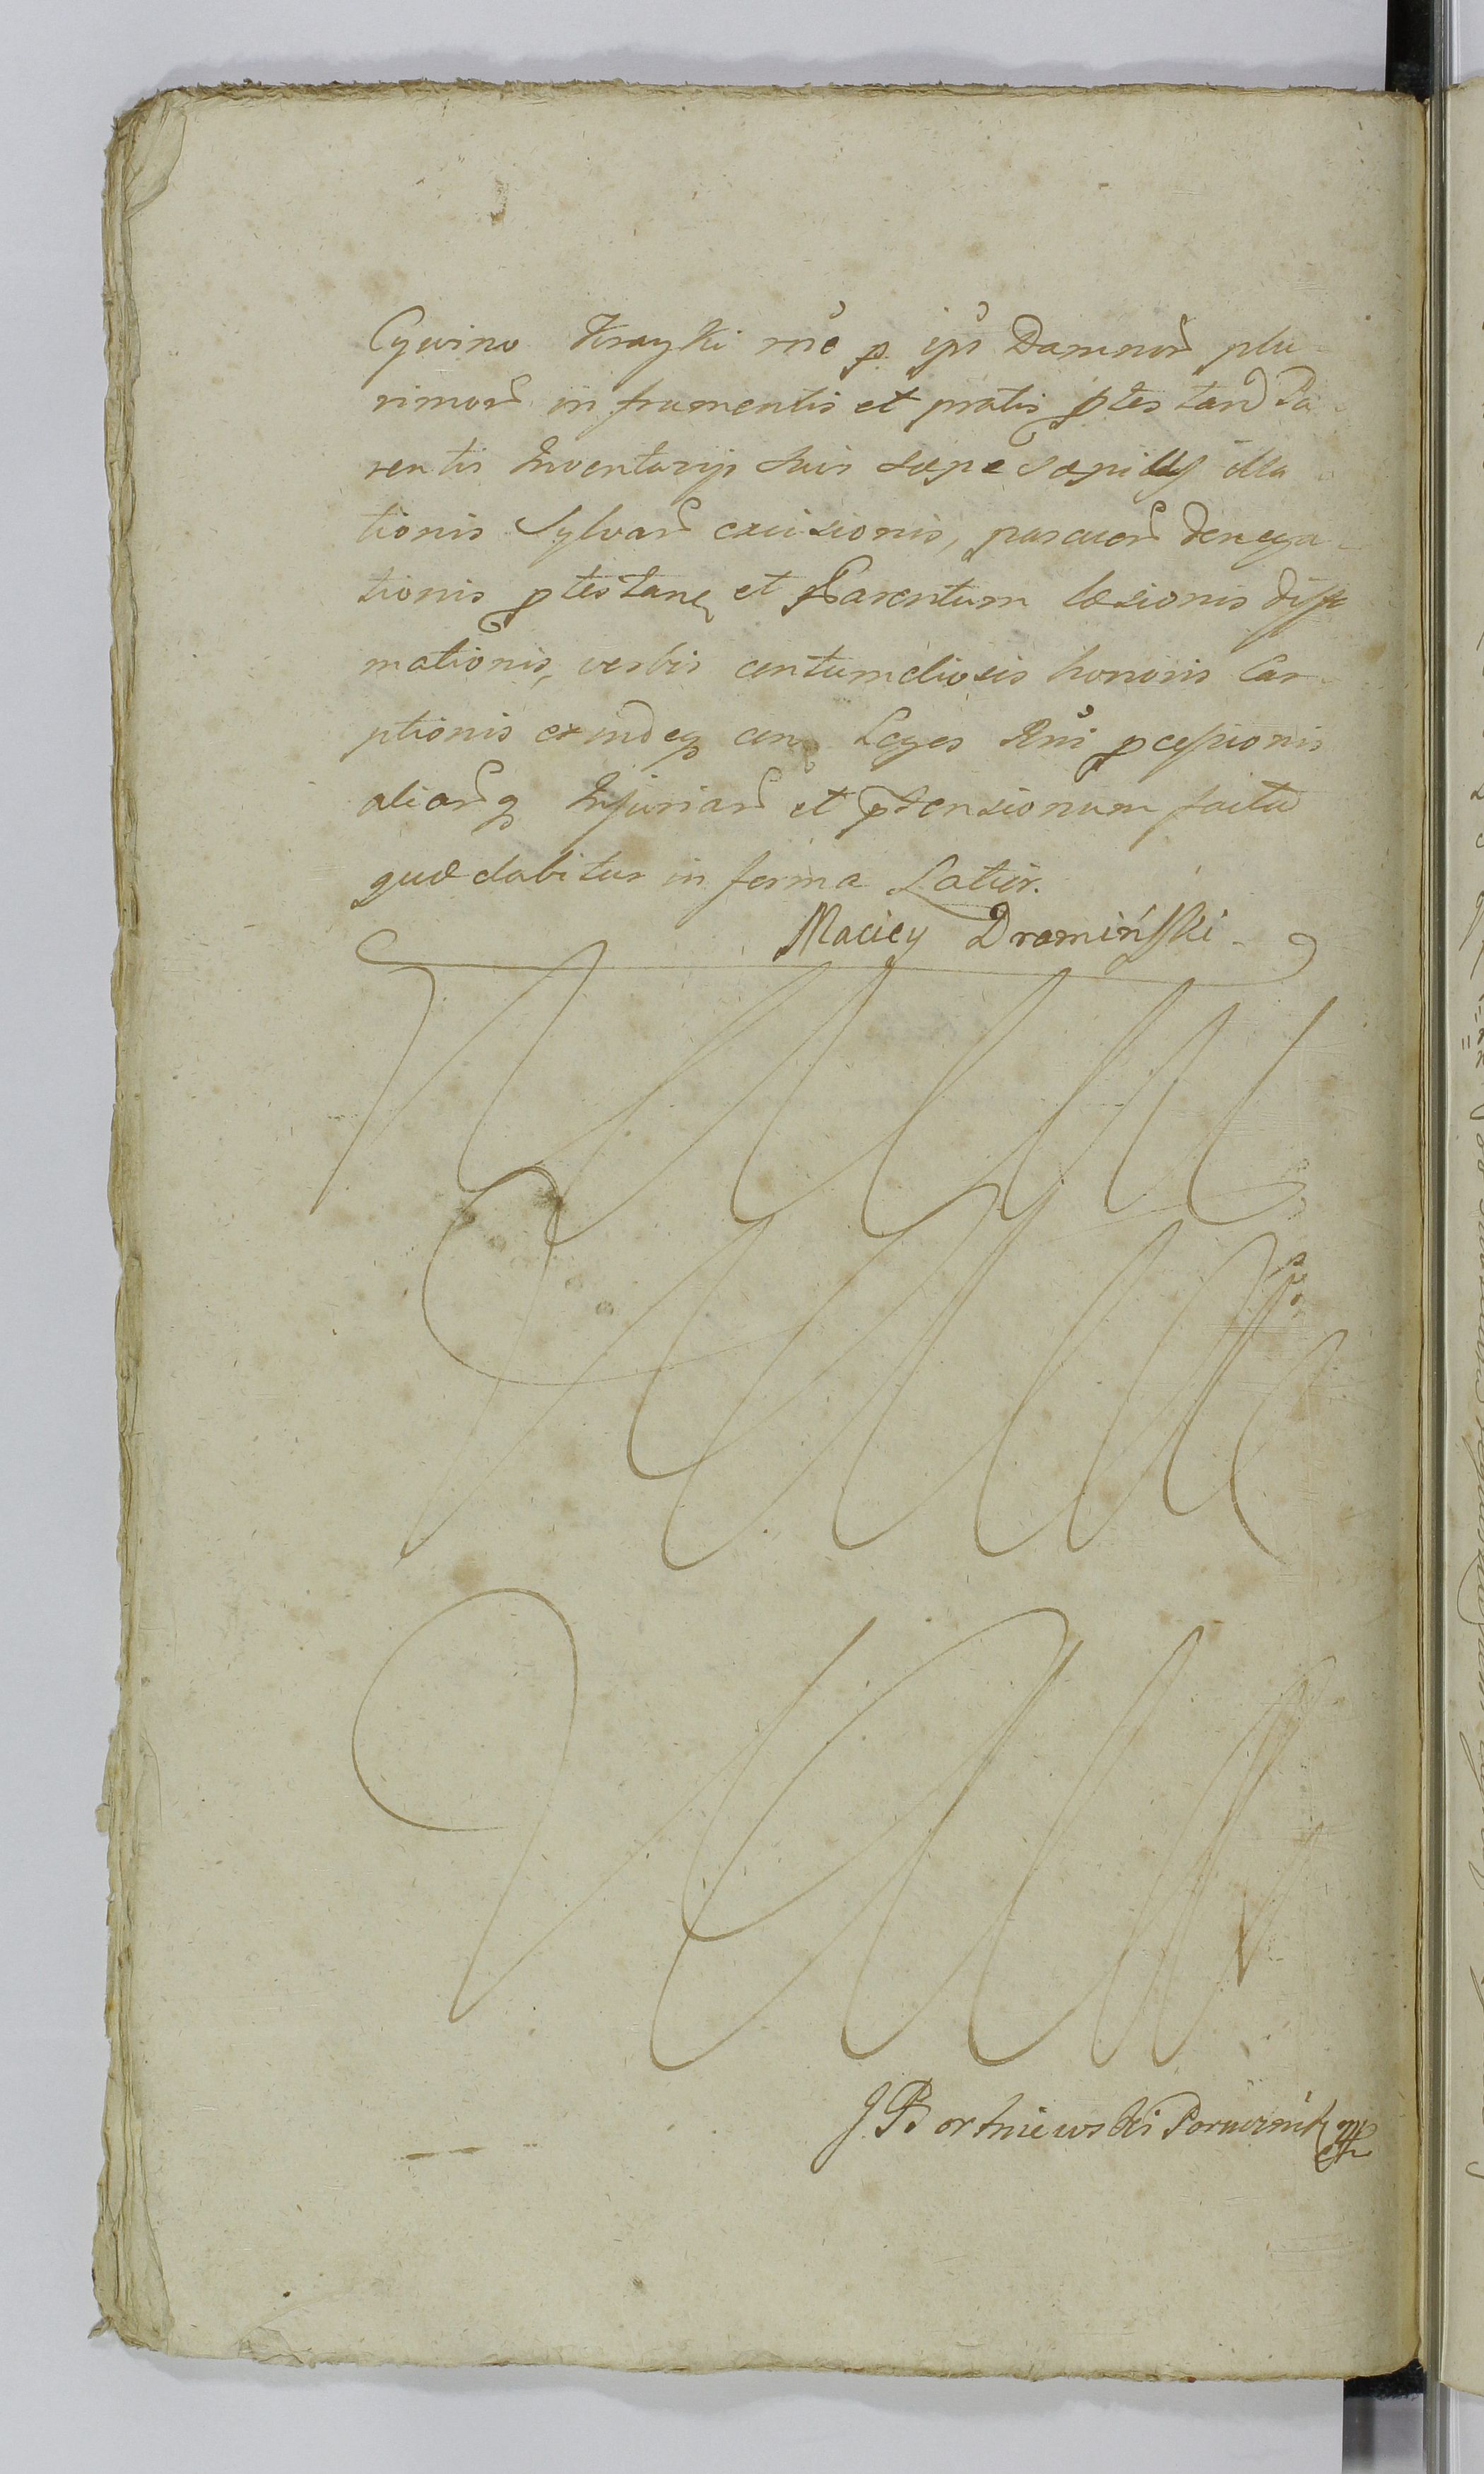 Cywino Krayki rñe p ips Damnor plu-
rimor in frumentis et pratis ptestan Pa-
rentis Inventarijs suis sæpe sæpius illa-
tionis Sylvar excisionis, pascuor denega-
tionis ptestane et Parentum læsionis diffa
mationis, verbis contumeliosis honoris Car-
ptionis exindeq con Leges Rni pcessionis
aliarq Injuriar et ptensionum facta
quæ dabitur in forma Latior.
Maciey Dramiński
J Bortniewski Porucznik